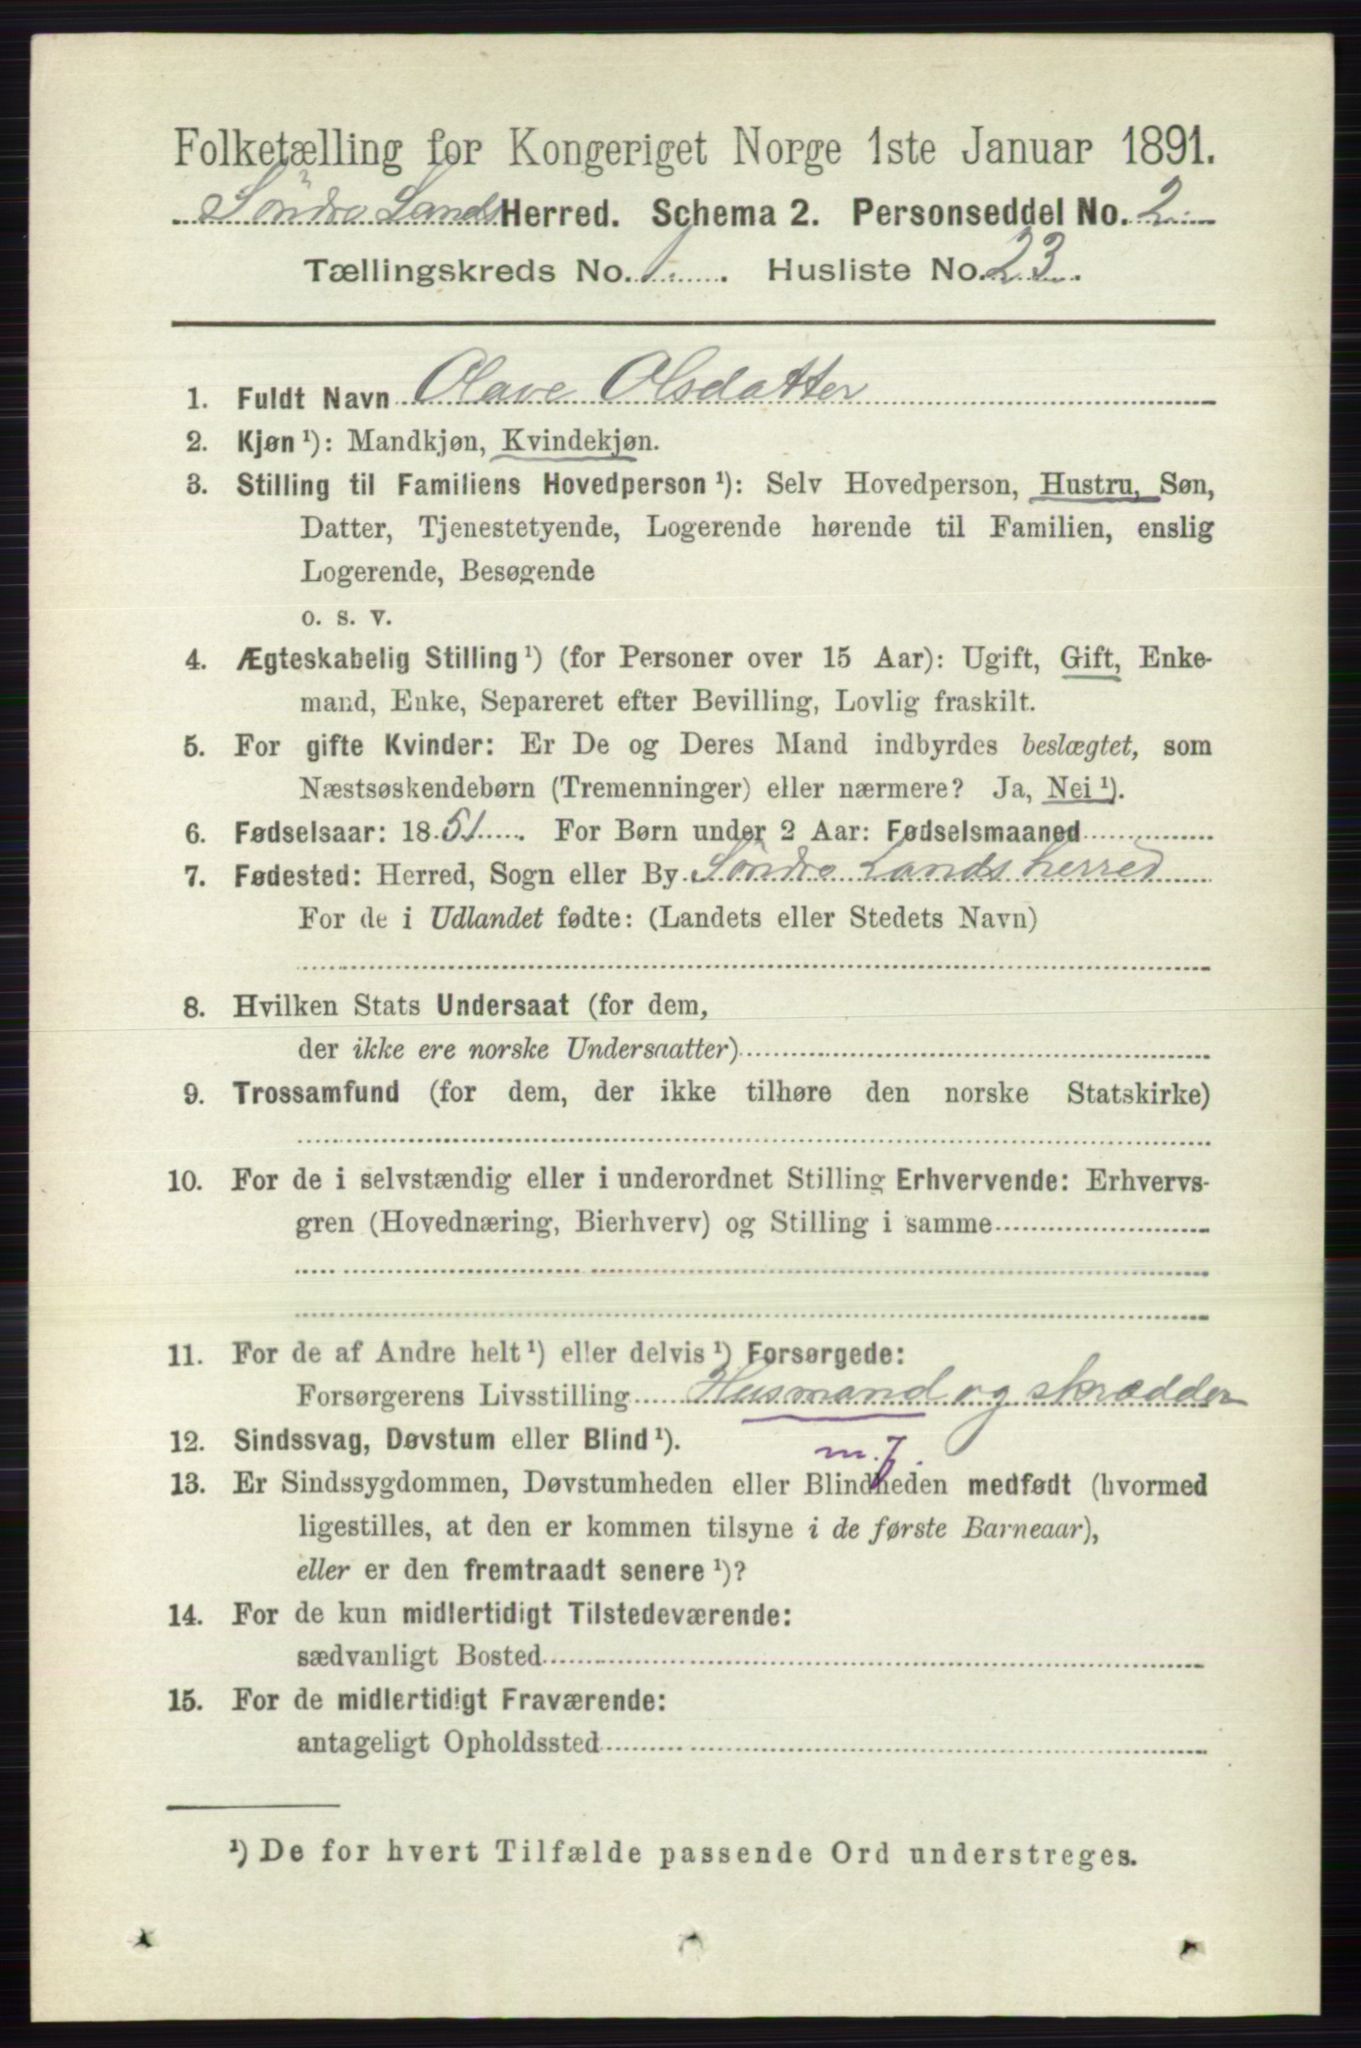 Folketælling for Kongeriget Norge 1ste Januar 1891.
Söndre Lands Herred. Schema 2. Personseddel No. 2
Tællingskreds No. 1. Husliste No. 23.
1. Fuldt Navn Olave Olsdatter
2. Kjøn ¹): Mandkjøn, Kvindekjøn.
3. Stilling til Familiens Hovedperson ¹): Selv Hovedperson, Hustru, Søn,
Datter, Tjenestetyende, Logerende hørende til Familien, enslig
Logerende, Besøgende
o. s. v.
4. Ægteskabelig Stilling ¹) (for Personer over 15 Aar): Ugift, Gift, Enke-
mand, Enke, Separeret efter Bevilling, Lovlig fraskilt.
5. For gifte Kvinder: Er De og Deres Mand indbyrdes beslægtet, som
Næstsøskendebørn (Tremenninger) eller nærmere? Ja, Nei ¹).
6. Fødselsaar: 1851. For Børn under 2 Aar: Fødselsmaaned
7. Fødested: Herred, Sogn eller By Söndre Lands herred
For de i Udlandet fødte: (Landets eller Stedets Navn)
8. Hvilken Stats Undersaat (for dem,
der ikke ere norske Undersaatter)
9. Trossamfund (for dem, der ikke tilhøre den norske Statskirke)
10. For de i selvstændig eller i underordnet Stilling Erhvervende: Erhvervs-
gren (Hovednæring, Bierhverv) og Stilling i samme
11. For de af Andre helt ¹) eller delvis ¹) Forsørgede:
Forsørgerens Livsstilling Husmand og skrædder
12. Sindssvag, Døvstum eller Blind ¹). m. j.
13. Er Sindssygdommen, Døvstumheden eller Blindheden medfødt (hvormed
ligestilles, at den er kommen tilsyne i de første Barneaar),
eller er den fremtraadt senere ¹)?
14. For de kun midlertidigt Tilstedeværende:
sædvanligt Bosted
15. For de midlertidigt Fraværende:
antageligt Opholdssted
¹) De for hvert Tilfælde passende Ord understreges.